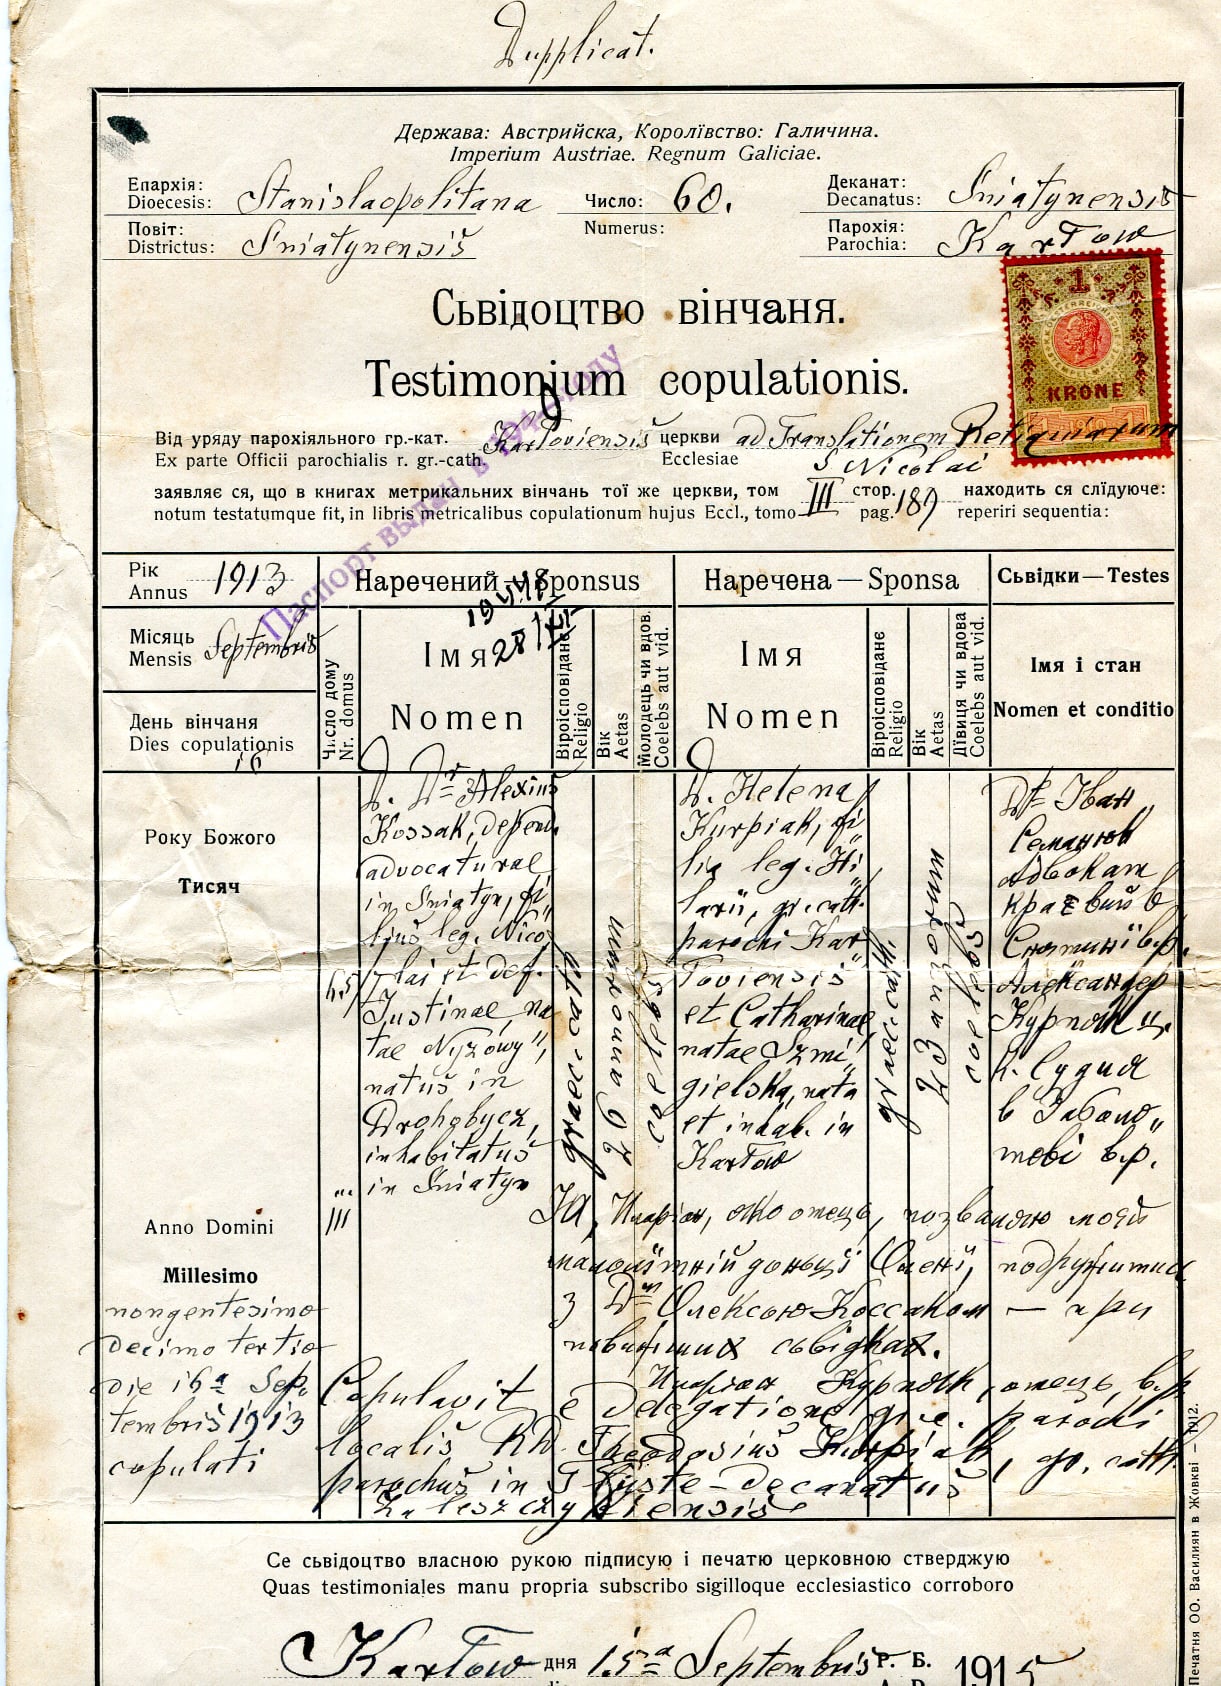 Dupplicat.
Держава: Австрийска, Королївство: Галичина.
Imperium Austriae. Regnum Galiciae.
Епархія:
Dioecesis: Stanislaopolitana
Число: 60.
Numerus:
Деканат:
Decanatus: Śniatynensis
Повіт:
Districtus: Śniatynensis
Парохія:
Parochia: Karłow
1
KRONE
Сьвідоцтво вінчаня.
Testimonium copulationis.
Від уряду парохіяльного гр.-кат. Karłoviensis церкви ad Translationem Reliquiarum
Ex parte Officii parochialis r. gr.-cath. Ecclesiae S Nicolai
заявляє ся, що в книгах метрикальних вінчань тої же церкви, том III стор. 189 находить ся слїдуюче:
notum testatumque fit, in libris metricalibus copulationum hujus Eccl., tomo pag. reperiri sequentia:
Паспорт выдан в 194 году
Рік
Annus 1913
Наречений — Sponsus
Наречена — Sponsa
Сьвідки — Testes
Місяць
Mensis Septembris
День вінчаня
Dies copulationis
16
Число дому
Nr. domus
Імя
Nomen
Віроісповіданє
Religio
Вік
Aetas
Молодець чи вдов.
Coelebs aut vid.
Імя
Nomen
Віроісповіданє
Religio
Вік
Aetas
Дївиця чи вдова
Coelebs aut vid.
Імя і стан
Nomen et conditio
Року Божого
Тисяч
65
D. Dr Alexius
Kossak, depend.
advocatural
in Śniatyn, fi„
lius leg. Nico„
lai et def.
Justinae, na
tae Nyzowy„
natus in
Drohobycz,
inhabitatus
in Śniatyn
graec. cath
26 annorum
coelebs
D. Helena
Kurpiak, fi„
lia leg. Hi„
larii, gr. cath.
parochi Kar„
łoviensis
et Catharinae,
natae Szmi„
gielska, nata
et inhab. in
Karłow
graec. cath.
23 annorum
coelebs
Др Іван
Семанюк
Адвокат
краєвий в
Снятинї в.р.
Александер
Курпяк ц.
к. Судия
в Заболо„
тові в.р.
Anno Domini
Millesimo
nongentesimo
decimo tertio
die 16a Sep„
tembris 1913
copulati
III
Я, Иларіон, яко отець, позваляю моїй
малолїтнїй доньцї Олені, подружитися
з Дром Олексою Коссаком — при
повисших сьвідках.
Иларіон Курпяк, отець, в.р.
Copulavit e delegatione gr. c. parochi
localis Rd. Theodosius Kurpiak, gr. cath.
parochus in Tłuste – decanatus
Zaleszczykiensis
Се сьвідоцтво власною рукою підписую і печатю церковною стверджую
Quas testimoniales manu propria subscribo sigilloque ecclesiastico corroboro
Karłow дня 15a Septembris Р. Б. 1915
Печатня ОО. Василиян в Жовкві — 1912.